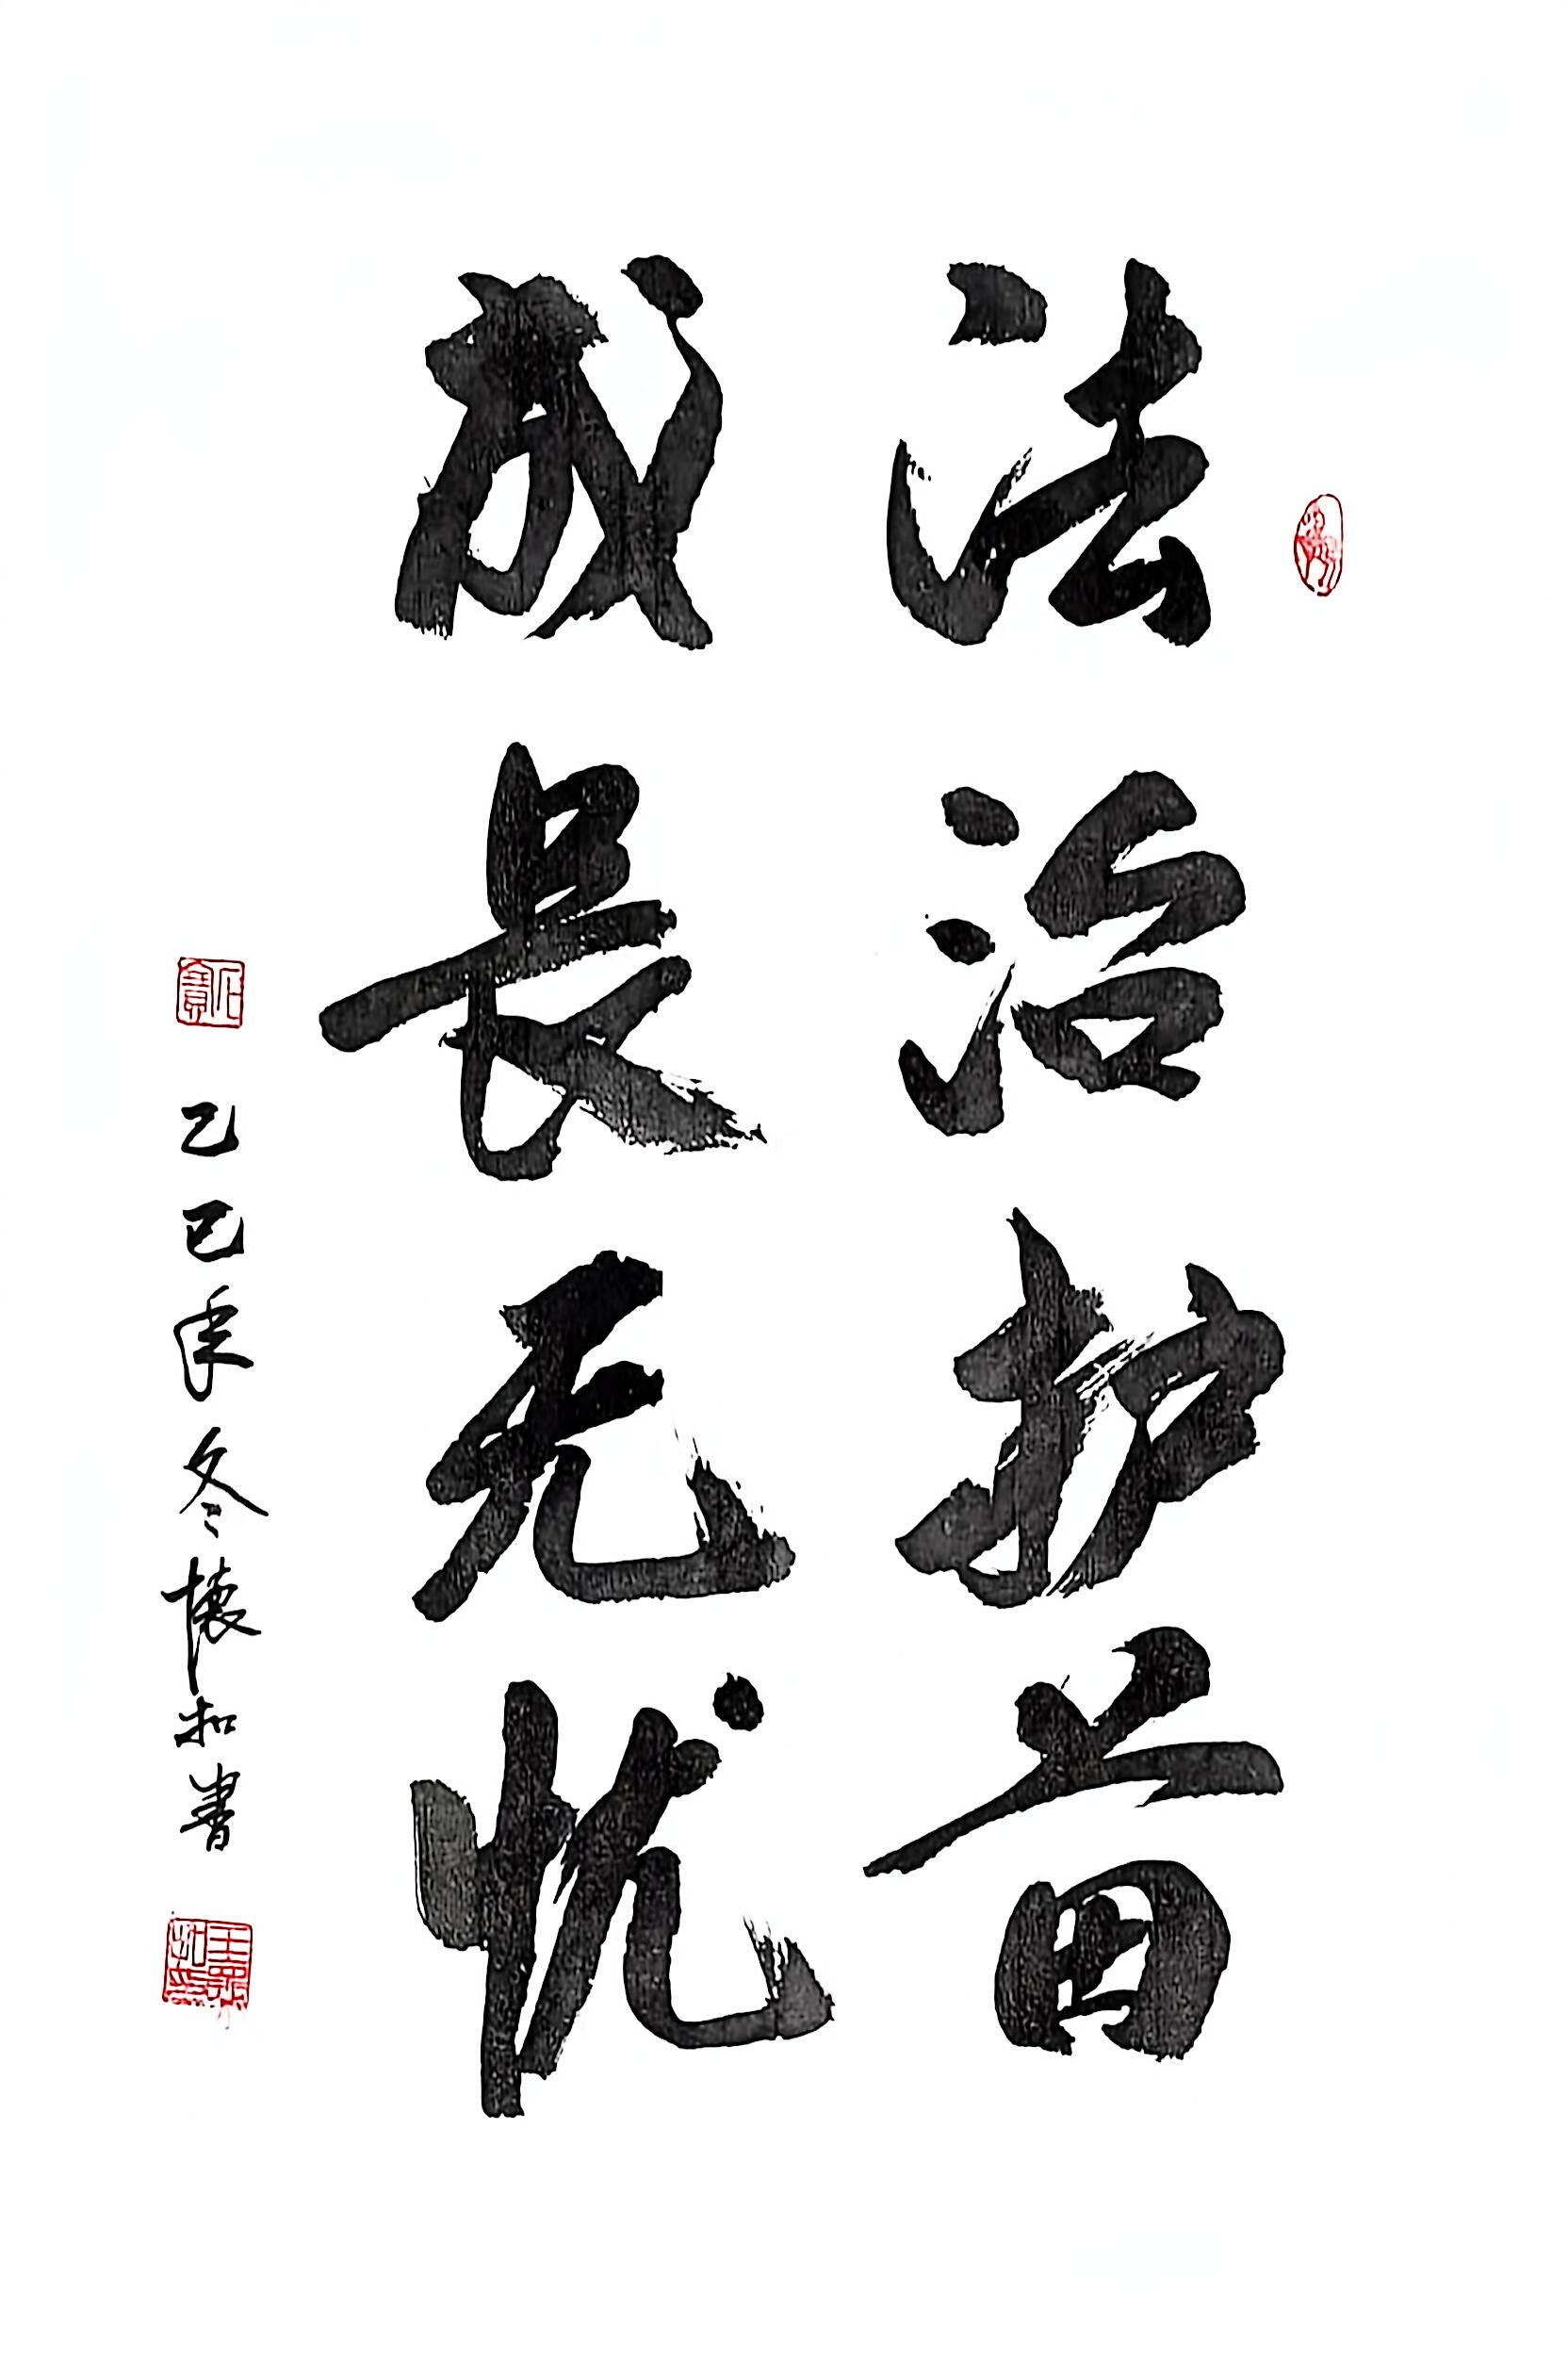 法治护苗
成長无忧
乙巳年冬懷扣書